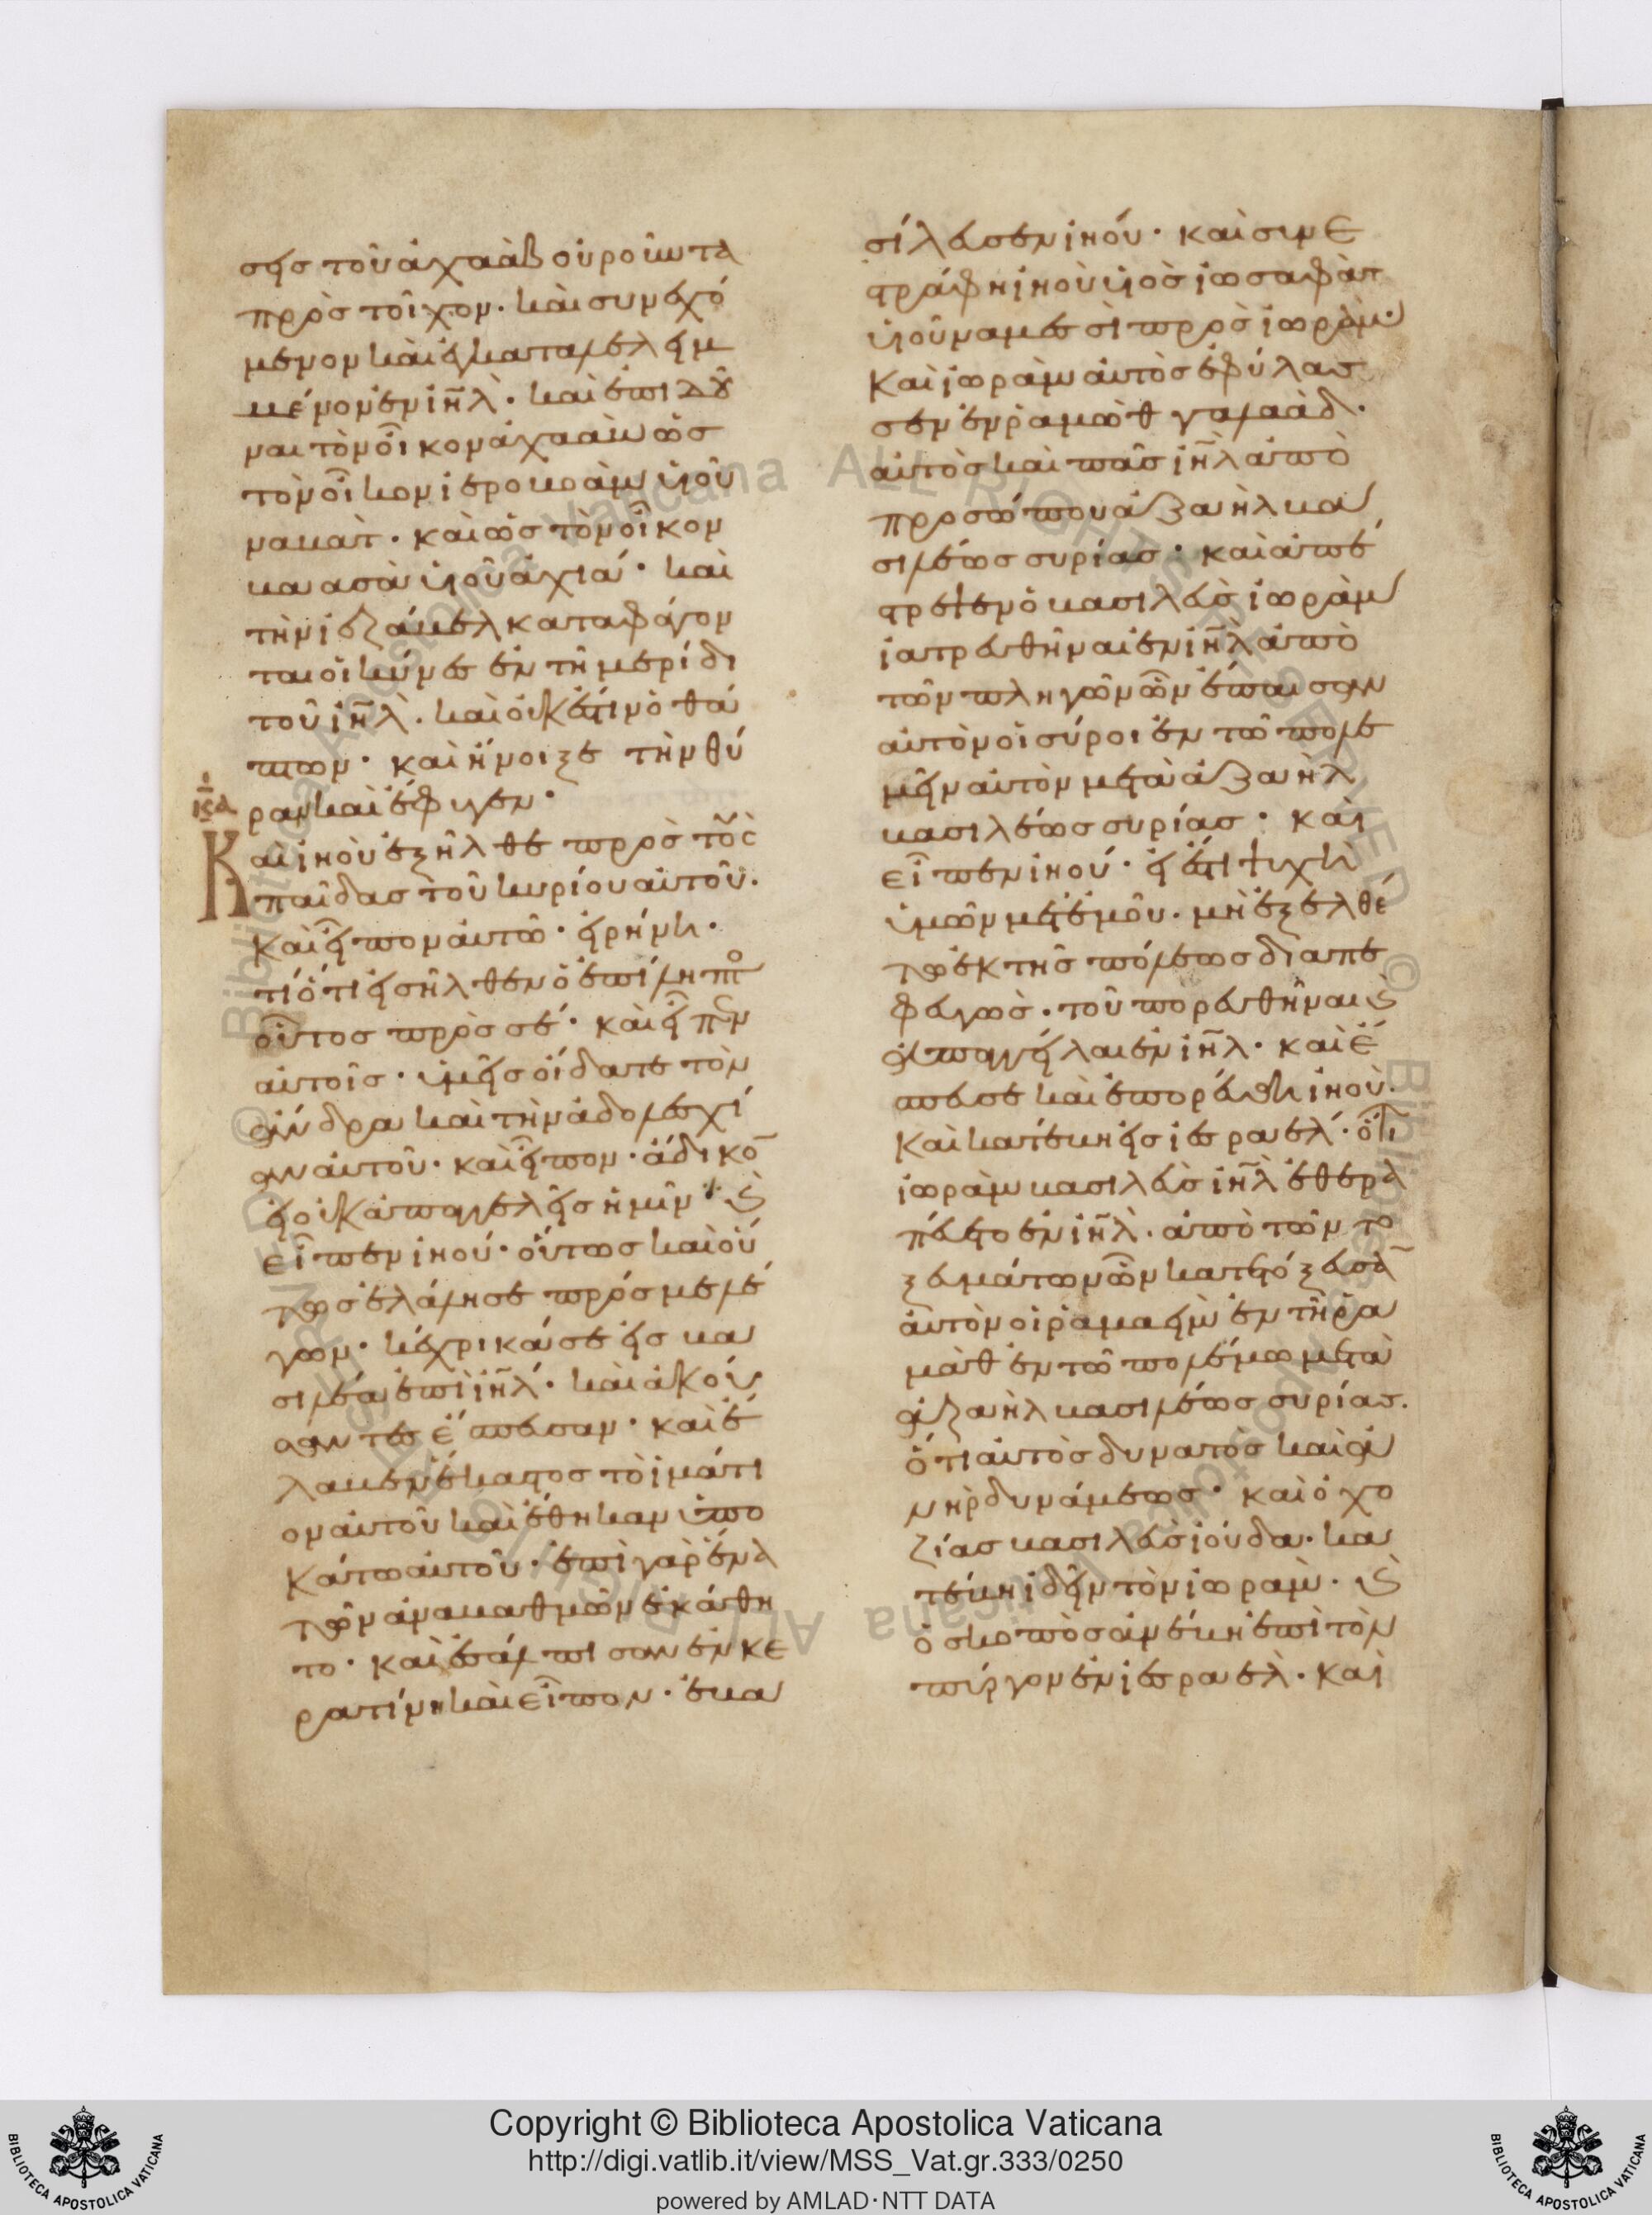 σεις τοῦ ἀχαὰβ οὐροῦντα
πρὸς τοῖχον· καὶ συνεχό
μενον καὶ ἐγκαταλελειμ
μένον ἐν ἰῆλ̀· καὶ ἐπιδοῦ
ναι τὸν οἶκον ἀχαὰβ ὡς
τὸν οἶκον ἱεροβοὰμ υἱοῦ
ναβὰτ· καὶ ὡς τὸν οἶκον
βαασὰ υἱοῦ ἀχιά· καὶ
τὴν ἰεζάβελ καταφάγον
ται οἱ κύνες ἐν τῆ μερίδι
τοῦ ἰῆλ̀· καὶ οὐκ ἔστιν ὁ θά
πτων· καὶ ἤνοιξε τὴν θύ
ραν καὶ ἔφυγεν·
Και ἰηοὺ ἐξῆλθε πρὸς τοὺς
παῖδας τοῦ κυρίου αὐτοῦ·
καὶ εἶπον αὐτῶ· εἰρήνη·
τί ὅτι εἰσῆλθεν ὁ ἐπίληπτο
οὗτος πρὸς σέ· καὶ εἶπεν
αὐτοῖς· ὑμεῖς οἴδατε τὸν
ἄνδρα καὶ τὴν ἀδολεσχί
αν αὐτοῦ· καὶ εἶπον· ἄδικο̅
εἰ οὐκ ἀπαγγελεῖς ἡμῖν· κ̀
εἶπεν ἰηού· οὕτως καὶ οὕ
τως ἐλάλησε πρός με λέ
γων· κέχρικά σε εἰς βα
σιλέα ἐπὶ ἰῆλ́· καὶ ἀκού
σαντες ἔσπευσαν· καὶ ἔ
λαβεν ἕκαστος τὸ ἱμάτι
ον αὐτοῦ καὶ ἔθηκαν ὑπο
κάτω αὐτοῦ· ἐπὶ γὰρ ἕνα
τῶν ἀναβαθμῶν ἐκάθη
το· καὶ ἐσάλπισαν ἐν κε
ρατίνη καὶ εἶπον· ἐβα
σίλευσεν ἰηού· καὶ συνε
στράφη ἰηοὺ υἱὸς ἰωσαφὰτ
υἱοῦ ναμεσὶ πρὸς ἰωράμ·
καὶ ἰωρὰμ αὐτὸς ἐφύλασ
σεν ἐν ῥαμὼθ γαλαάδ·
αὐτὸς καὶ πᾶς ἰῆλ̀ ἀπὸ
προσώπου ἀζαὴλ βα
σιλέως συρίας· καὶ ἀπέ
στρεψεν ὁ βασιλεὺς ἰωρὰμ
ἰατρευθῆναι ἐν ἰῆλ̀ ἀπὸ
τῶν πληγῶν ὧν ἔπαισαν
αὐτὸν οἱ σύροι ἐν τῶ πολε
μεῖν αὐτὸν μετὰ ἀζαὴλ
βασιλέως συρίας· καὶ
εἶπεν ἰηού· εἰ ἔστι ψυχὴ
ὑμῶν μετ' ἐμοῦ· μὴ ἐξελθέ
τω ἐκ τῆς πόλεως διαπε
φευγὼς· τοῦ πορευθῆναι κ̀
ἀπαγγεῖλαι ἐν ἰῆλ· καὶ ἔ
σπευσε καὶ ἐπορεύθη ἰηοὺ·
καὶ κατέβη εἰς ἰεσραελ́· ὅτι
ἰωρὰμ βασιλεὺς ἰῆλ̀ ἐθερα
πεύετο ἐν ἰῆλ̀· ἀπὸ τῶν το
ξευμάτων ὧν κατετόξευσα̅
αὐτὸν οἱ ῥαμαεὶμ ἐν τῆ ῥα
μὰθ ἐν τῶ πολέμω μετὰ
ἀζαὴλ βασιλέως συρίας·
ὅτι αὐτὸς δυνατὸς καὶ ἀ
νὴρ δυνάμεως· καὶ ὀχο
ζίας βασιλεὺς ἰούδα· κα
τέβη ἰδεῖν τὸν ἰωραμ̀· κ̀
ὁ σκοπὸς ἀνέβη ἐπὶ τὸν
πύργον ἐν ἰεσραελ̀· καὶ
Copyright © Biblioteca Apostolica Vaticana
http://digi.vatlib.it/view/MSS_Vat.gr.333/0250
powered by AMLAD·NTT DATA
BIBLIOTECA APOSTOLICA VATICANA
BIBLIOTECA APOSTOLICA VATICANA